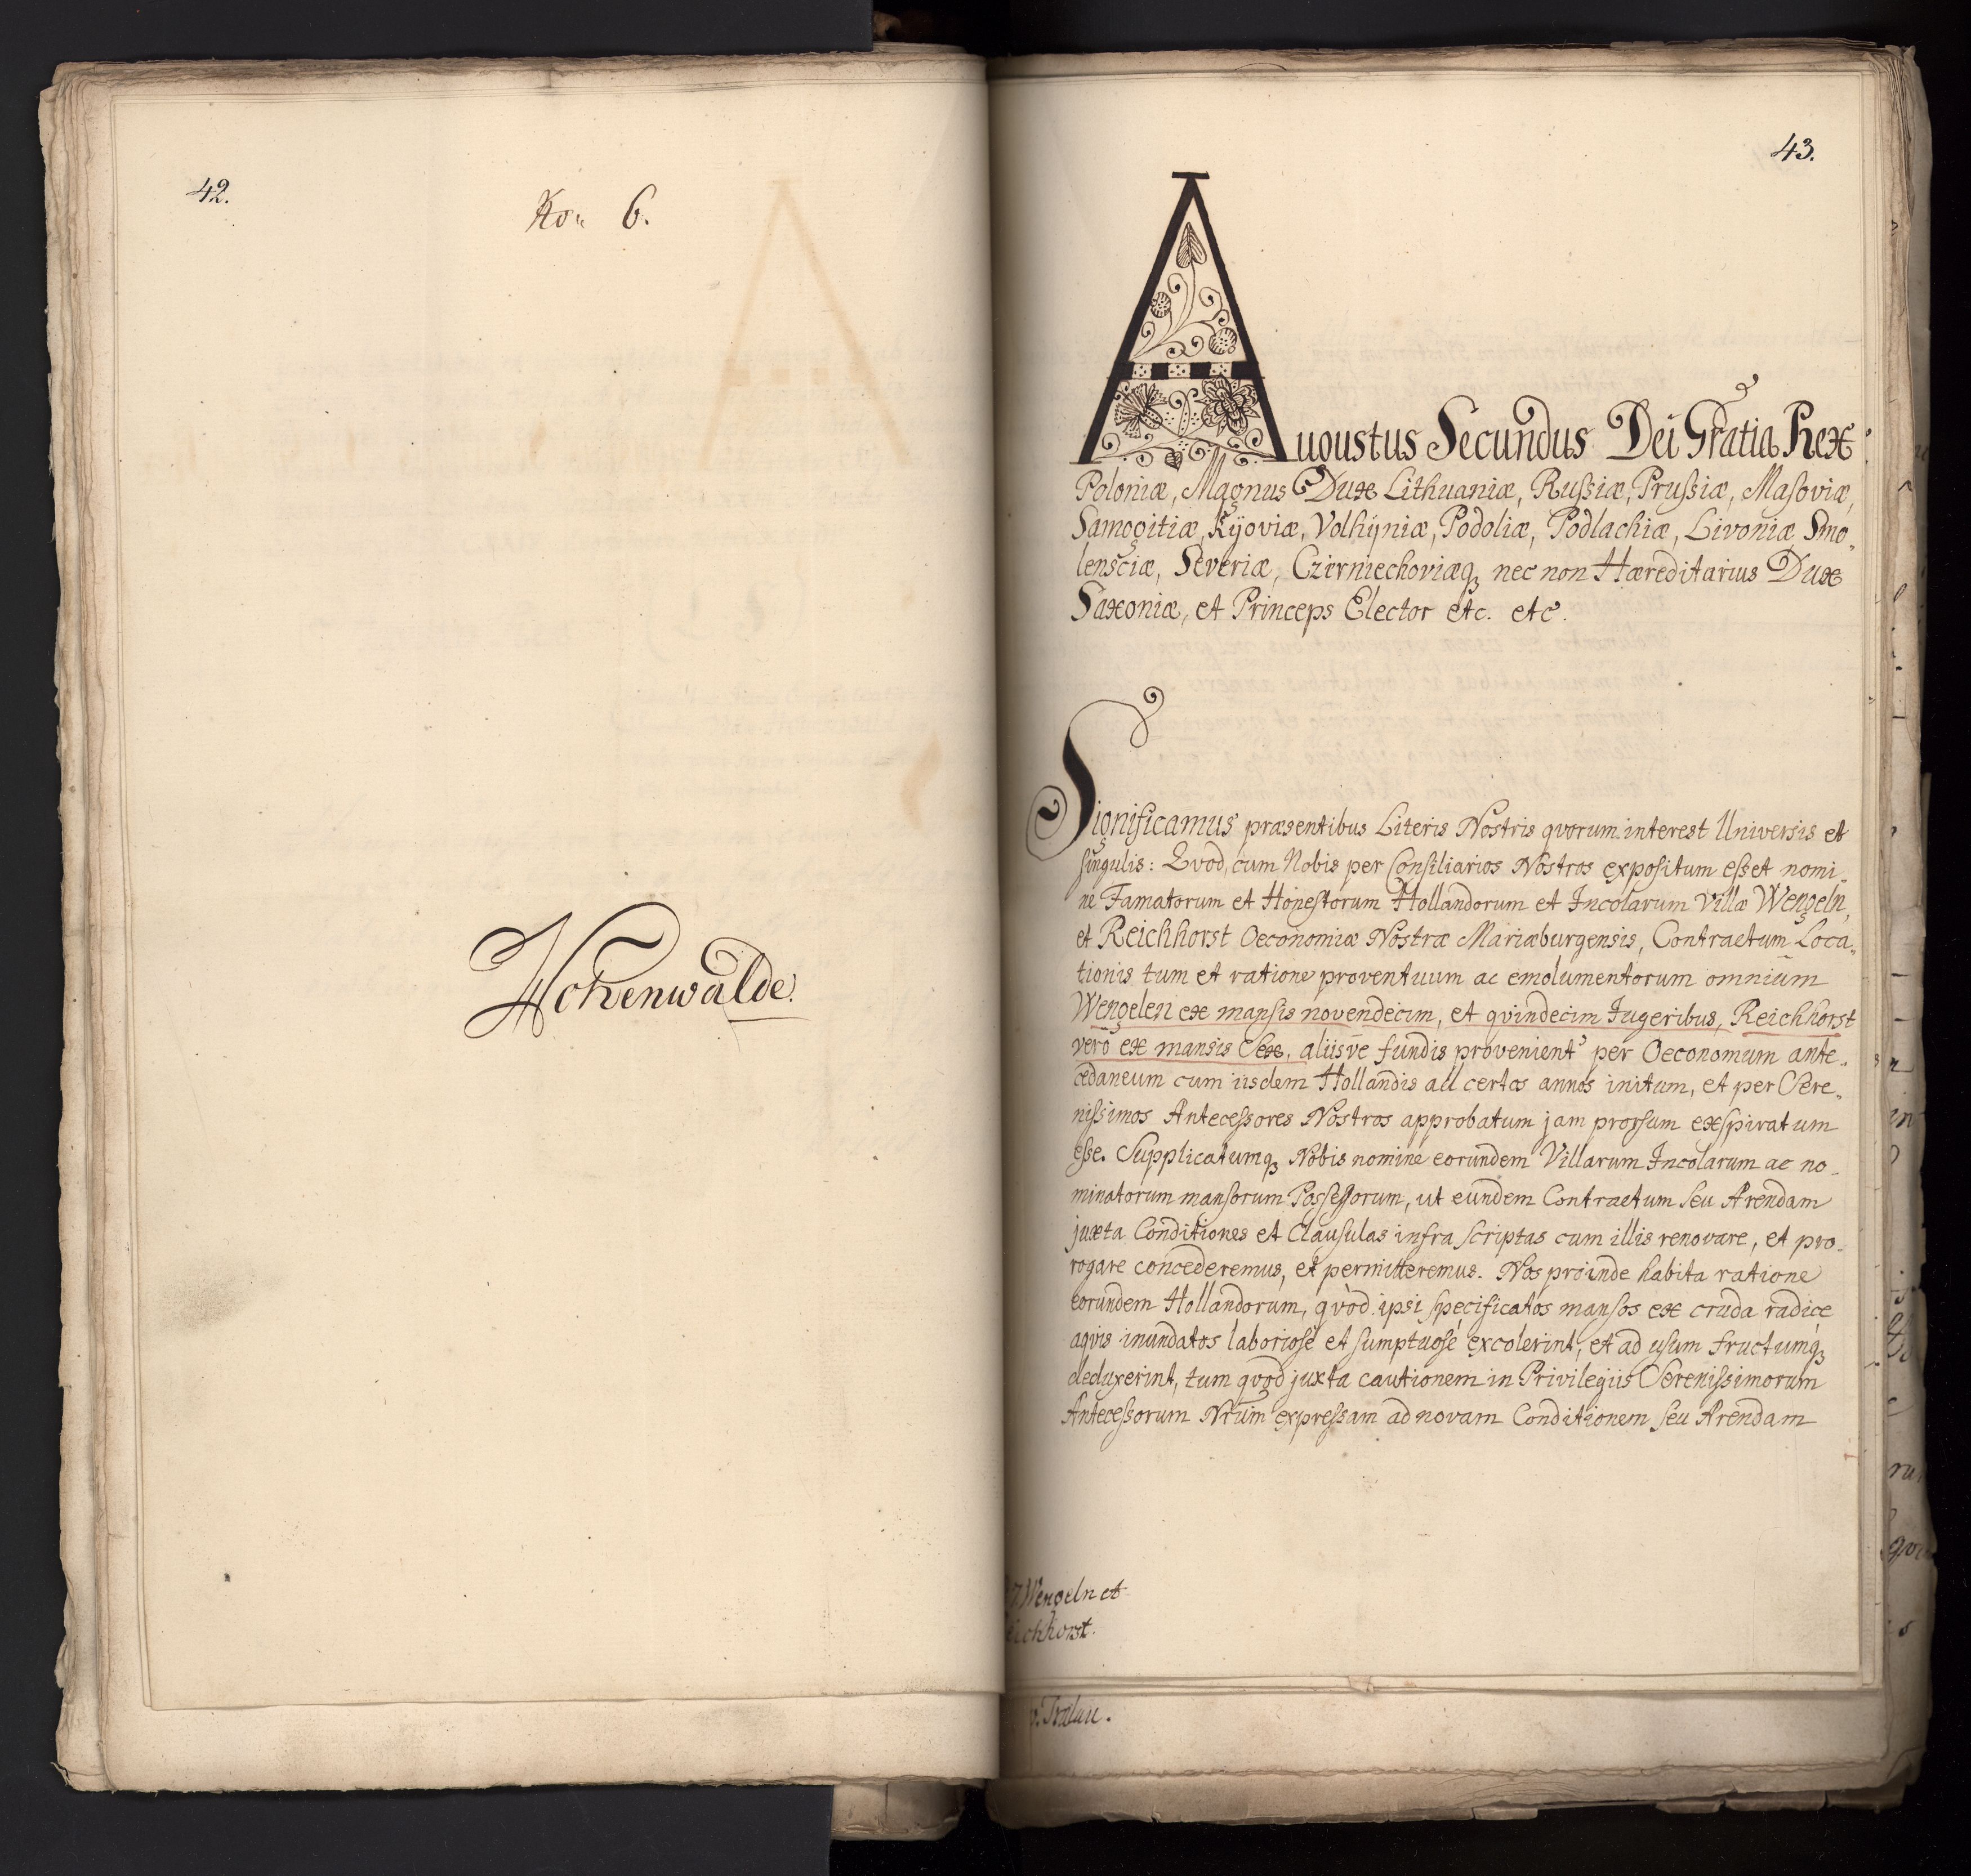 42.
No. 6.
Hohenwalde.
43.
Augustus Secundus Dei Gratia Rex
Poloniæ, Magnus Dux Lithuaniæ, Russiæ, Prussiæ, Masoviæ,
Samogitiæ, Kijoviæ, Volhijniæ, Podoliæ, Podlachiæ, Livoniæ, Smo„
lensciæ, Severiæ, Czerniechoviæq nec non Hæreditarius Dux
Saxoniæ, et Princeps Elector etc. etc.
Significamus præsentibus Literis Nostris qvorum interest Universis et
singulis: Qvod, cum Nobis per Consiliarios Nostros expositum esset nomi„
ne Famatorum et Honestorum Hollandorum et Incolarum Villæ Wengeln,
et Reichhorst Oeconomiæ Nostræ Mariæburgensis, Contractum Loca„
tionis tum et ratione proventuum ac emolumentorum omnium
Wengelen ex mansis novendecim, et qvindecim Jugeribus, Reichhorst
vero ex mansis Sex, aliisve fundis provenient per Oeconomum ante„
cedaneum cum iisdem Hollandis ad certos annos initum, et per Sere„
nissimos Antecessores Nostros approbatum jam prorsum exspiratum
esse. Supplicatumq Nobis nomine eorundem Villarum Incolarum ac no„
minatorum mansorum Possessorum, ut eundem Contractum seu Arendam
juxta Conditiones et Clausulas infra scriptas cum illis renovare, et pro„
rogare concederemus, et permitteremus. Nos proinde habita ratione
eorundem Hollandorum, qvòd ipsi specificatos mansos ex cruda radice
aqvis inundatos laboriosé et sumptuosé excolerint, et ad usum fructumq
deduxerint, tum qvod juxta cautionem in Privilegiis Serenissimorum
Antecessorum Nrum expressam ad novam Conditionem seu Arendam
7. Wengeln et
eichhorst.
Tralau.